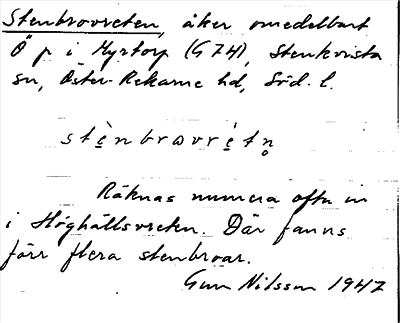 Stenbrovreten, åker omedelbart
Ö p i Myrtorp (G 74), Stenkvista
sn, Öster-Rekarne hd, Söd. l.
stè̱nbrωvrè̱tn̥
Räknas numera ofta in
i Höghällsvreten. Där fanns
förr flera stenbroar.
Gun Nilsson 1947